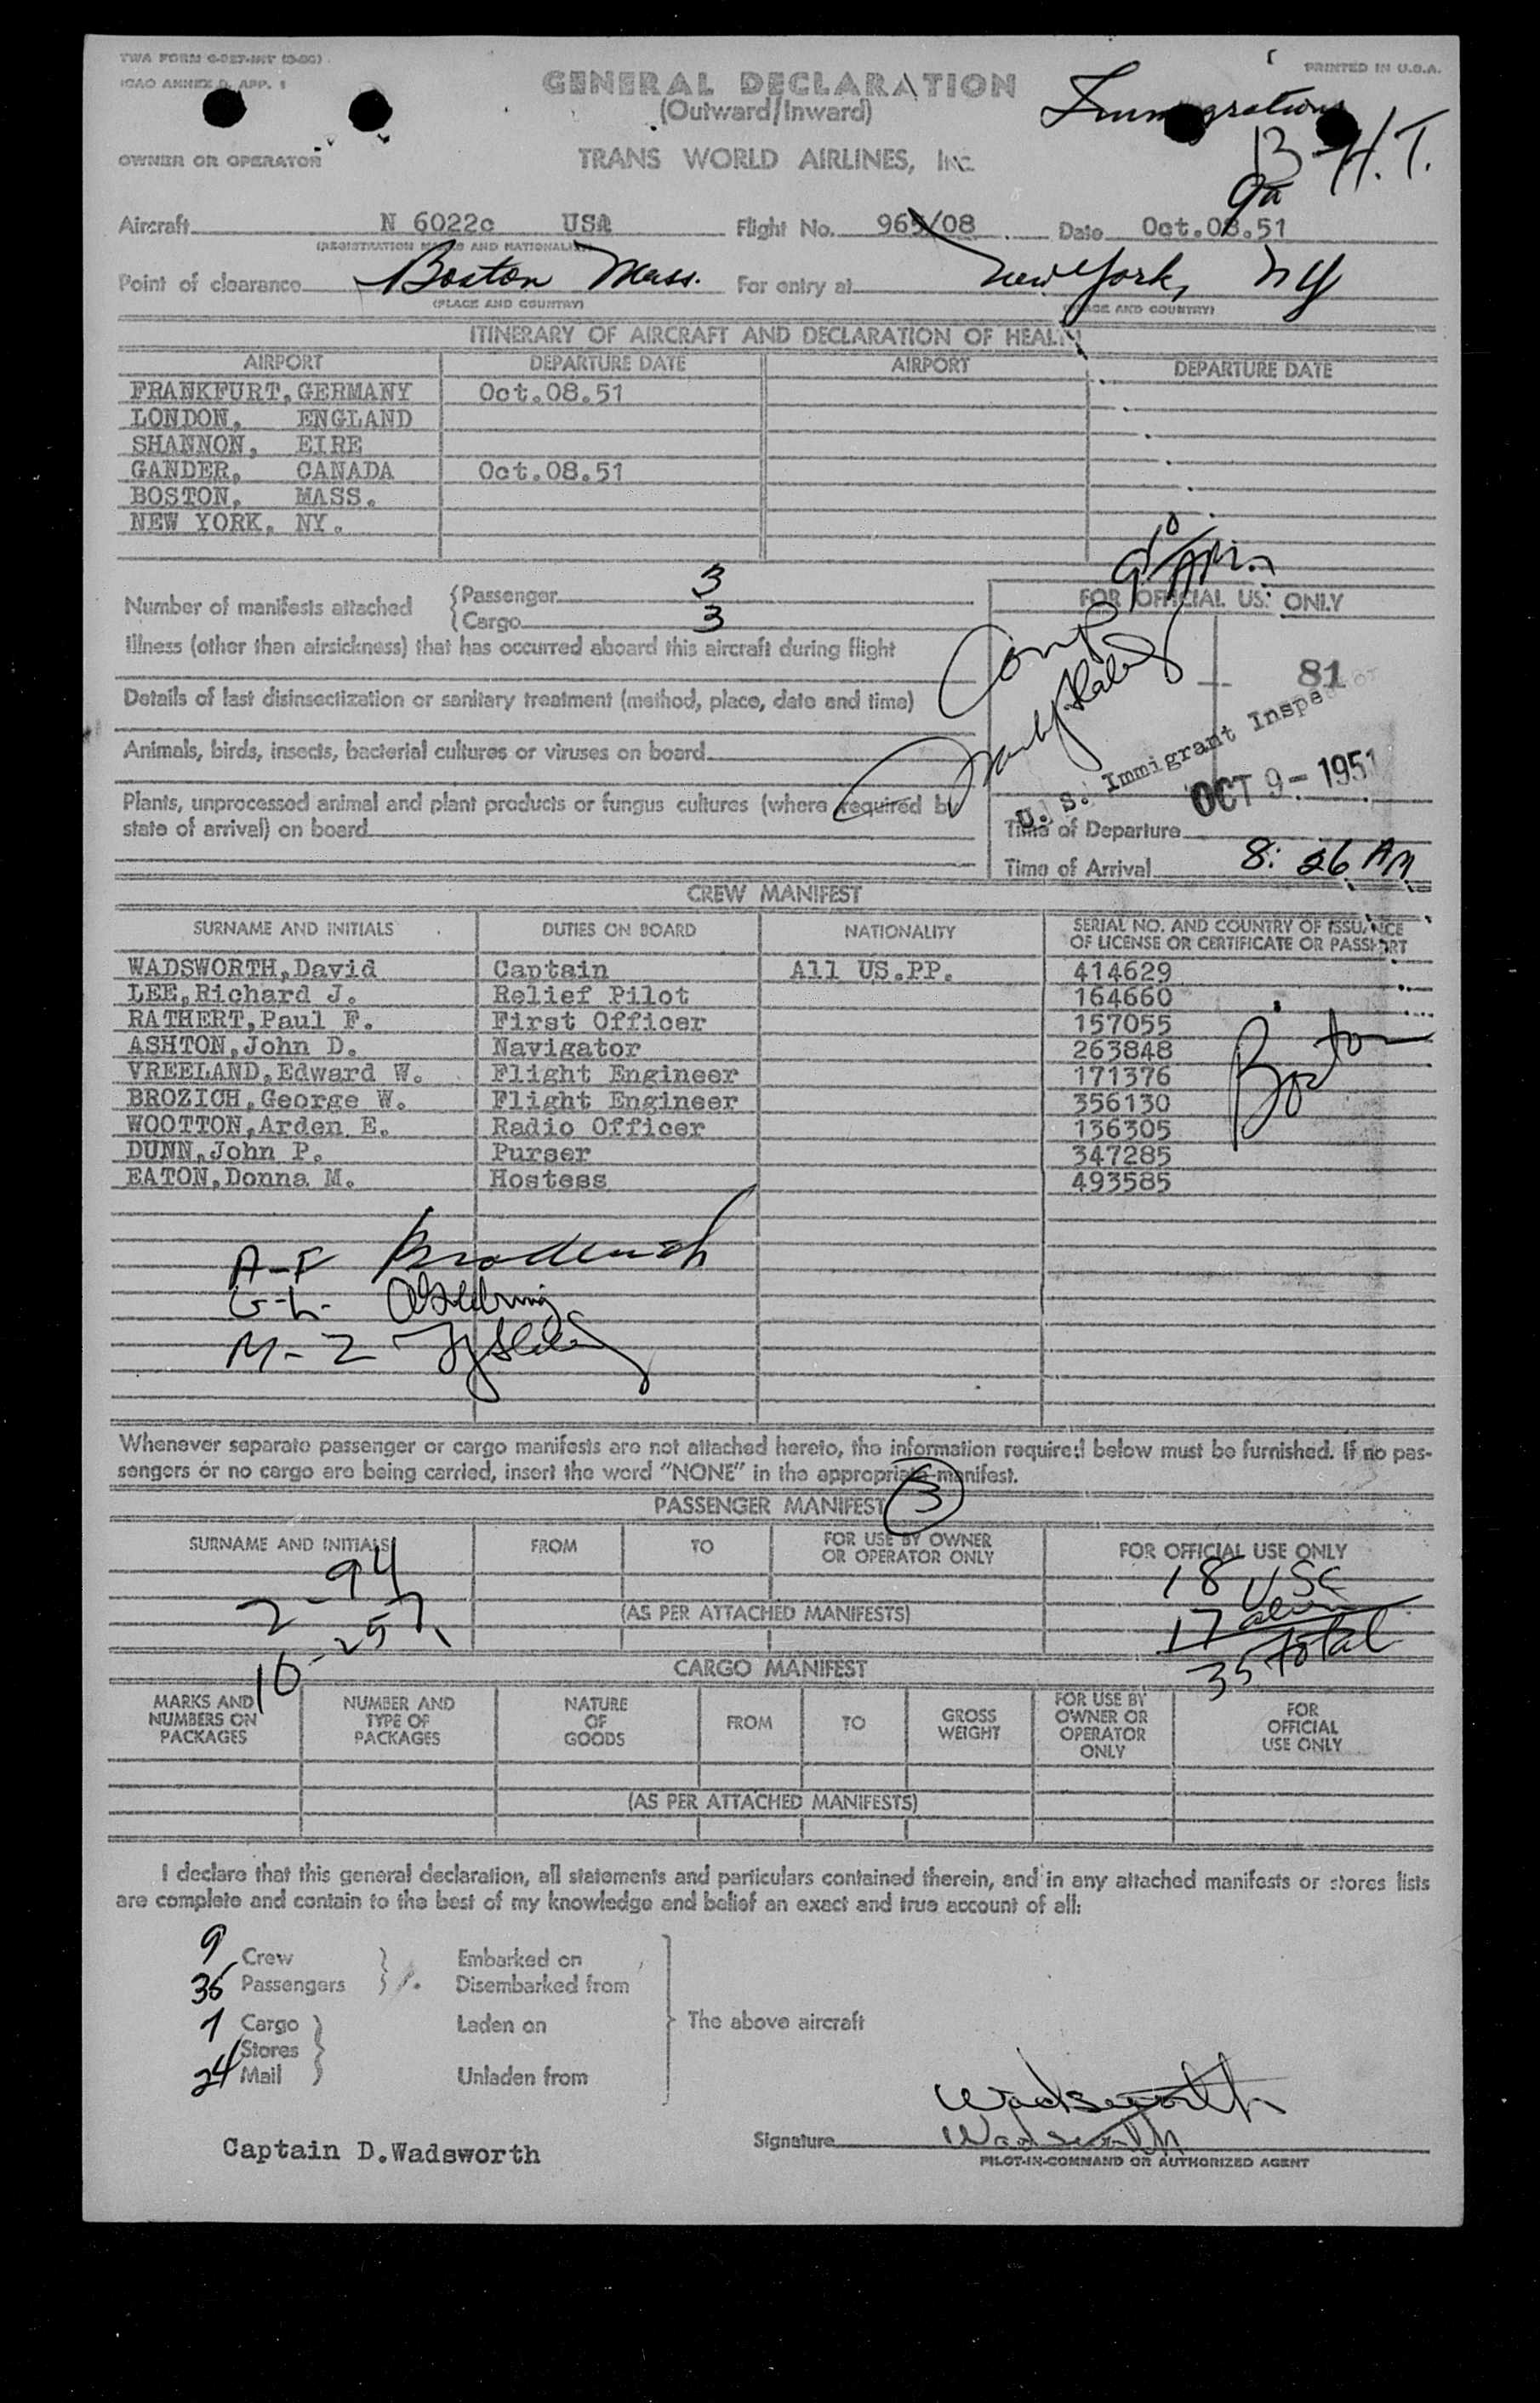 TWA FORM
ICAO ANNEX 9, APP. 1
PRINTED IN U.S.A.
GENERAL DECLARATION
(Outward/Inward)
Immigration
13 H.T.
9a
OWNER OR OPERATOR TRANS WORLD AIRLINES, INC.
Aircraft N 6022c USA Flight No. 965/08 Date Oct.08.51
(REGISTRATION MARKS AND NATIONALITY)
Point of clearance Boston Mass. For entry at New York, NY
(PLACE AND COUNTRY) (PLACE AND COUNTRY)
ITINERARY OF AIRCRAFT AND DECLARATION OF HEALTH
AIRPORT DEPARTURE DATE AIRPORT DEPARTURE DATE
FRANKFURT, GERMANY Oct.08.51
LONDON, ENGLAND
SHANNON, EIRE
GANDER, CANADA Oct.08.51
BOSTON, MASS.
NEW YORK, NY.
Number of manifests attached {Passenger 3
{Cargo 3
Illness (other than airsickness) that has occurred aboard this aircraft during flight
Details of last disinsectization or sanitary treatment (method, place, date and time)
Animals, birds, insects, bacterial cultures or viruses on board
Plants, unprocessed animal and plant products or fungus cultures (where required by
state of arrival) on board
FOR OFFICIAL USE ONLY
Comp 9 10 AM.
81
U. S. Immigrant Inspector
OCT 9 - 1951
Time of Departure
Time of Arrival 8:26 AM
CREW MANIFEST
SURNAME AND INITIALS DUTIES ON BOARD NATIONALITY SERIAL NO. AND COUNTRY OF ISSUANCE
OF LICENSE OR CERTIFICATE OR PASSPORT
WADSWORTH,David Captain All US.PP. 414629
LEE,Richard J. Relief Pilot 164660
RATHERT,Paul F. First Officer 157055
ASHTON,John D. Navigator 263848
VREELAND,Edward W. Flight Engineer 171376
BROZICH,George W. Flight Engineer 356130
WOOTTON,Arden E. Radio Officer 136305
DUNN,John P. Purser 347285
EATON,Donna M. Hostess 493585
Boston
A-F
G-L
M-Z
Whenever separate passenger or cargo manifests are not attached hereto, the information required below must be furnished. If no pas-
sengers or no cargo are being carried, insert the word "NONE" in the appropriate manifest.
PASSENGER MANIFEST 3
SURNAME AND INITIALS FROM TO FOR USE BY OWNER
OR OPERATOR ONLY FOR OFFICIAL USE ONLY
2 - 94
10 - 257
(AS PER ATTACHED MANIFESTS)
18 USC
17 alien
35 total
CARGO MANIFEST
MARKS AND
NUMBERS ON
PACKAGES
NUMBER AND
TYPE OF
PACKAGES
NATURE
OF
GOODS
FROM
TO
GROSS
WEIGHT
FOR USE BY
OWNER OR
OPERATOR
ONLY
FOR
OFFICIAL
USE ONLY
(AS PER ATTACHED MANIFESTS)
I declare that this general declaration, all statements and particulars contained therein, and in any attached manifests or stores lists
are complete and contain to the best of my knowledge and belief an exact and true account of all:
9 Crew Embarked on
35 Passengers Disembarked from
7 Cargo Laden on The above aircraft
Stores
24 Mail Unladen from
Wadsworth
Captain D.Wadsworth Signature Wadsworth
PILOT-IN-COMMAND OR AUTHORIZED AGENT